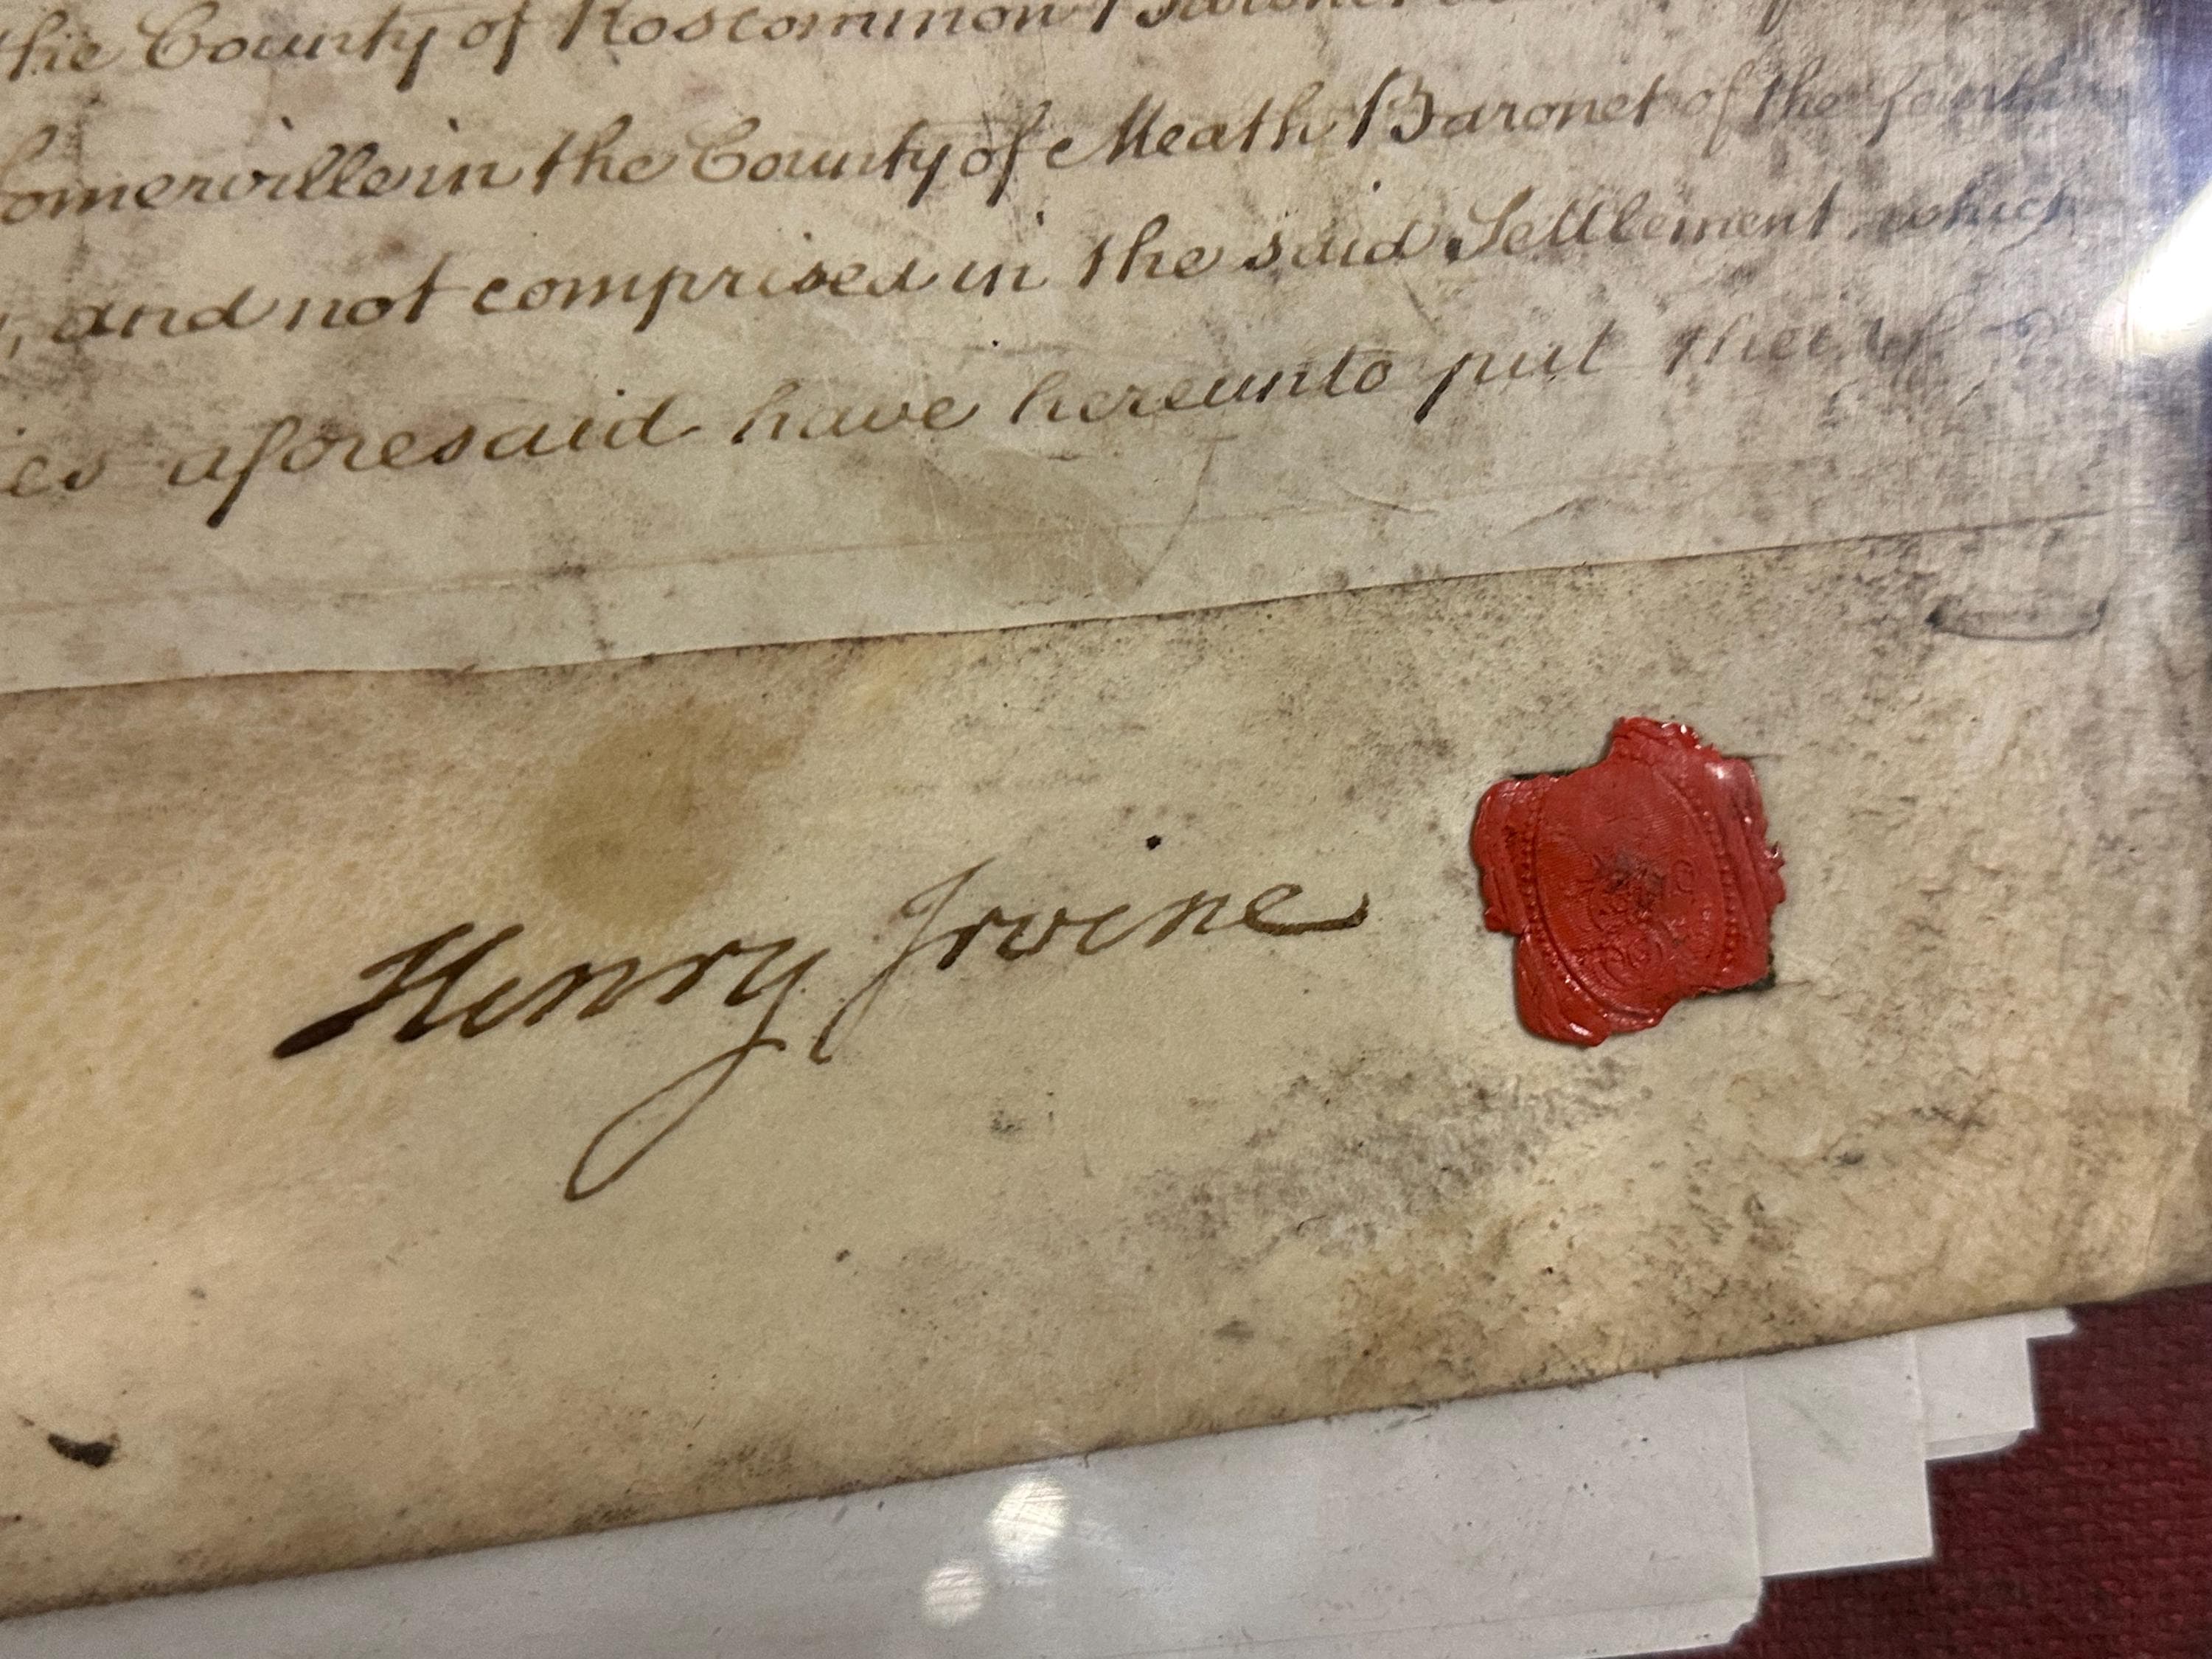 the County of Roscommon Baronet
Somerville in the County of Meath Baronet of the fourth
, and not comprised in the said Settlement, which
ies aforesaid have hereunto put their
Henry Irvine